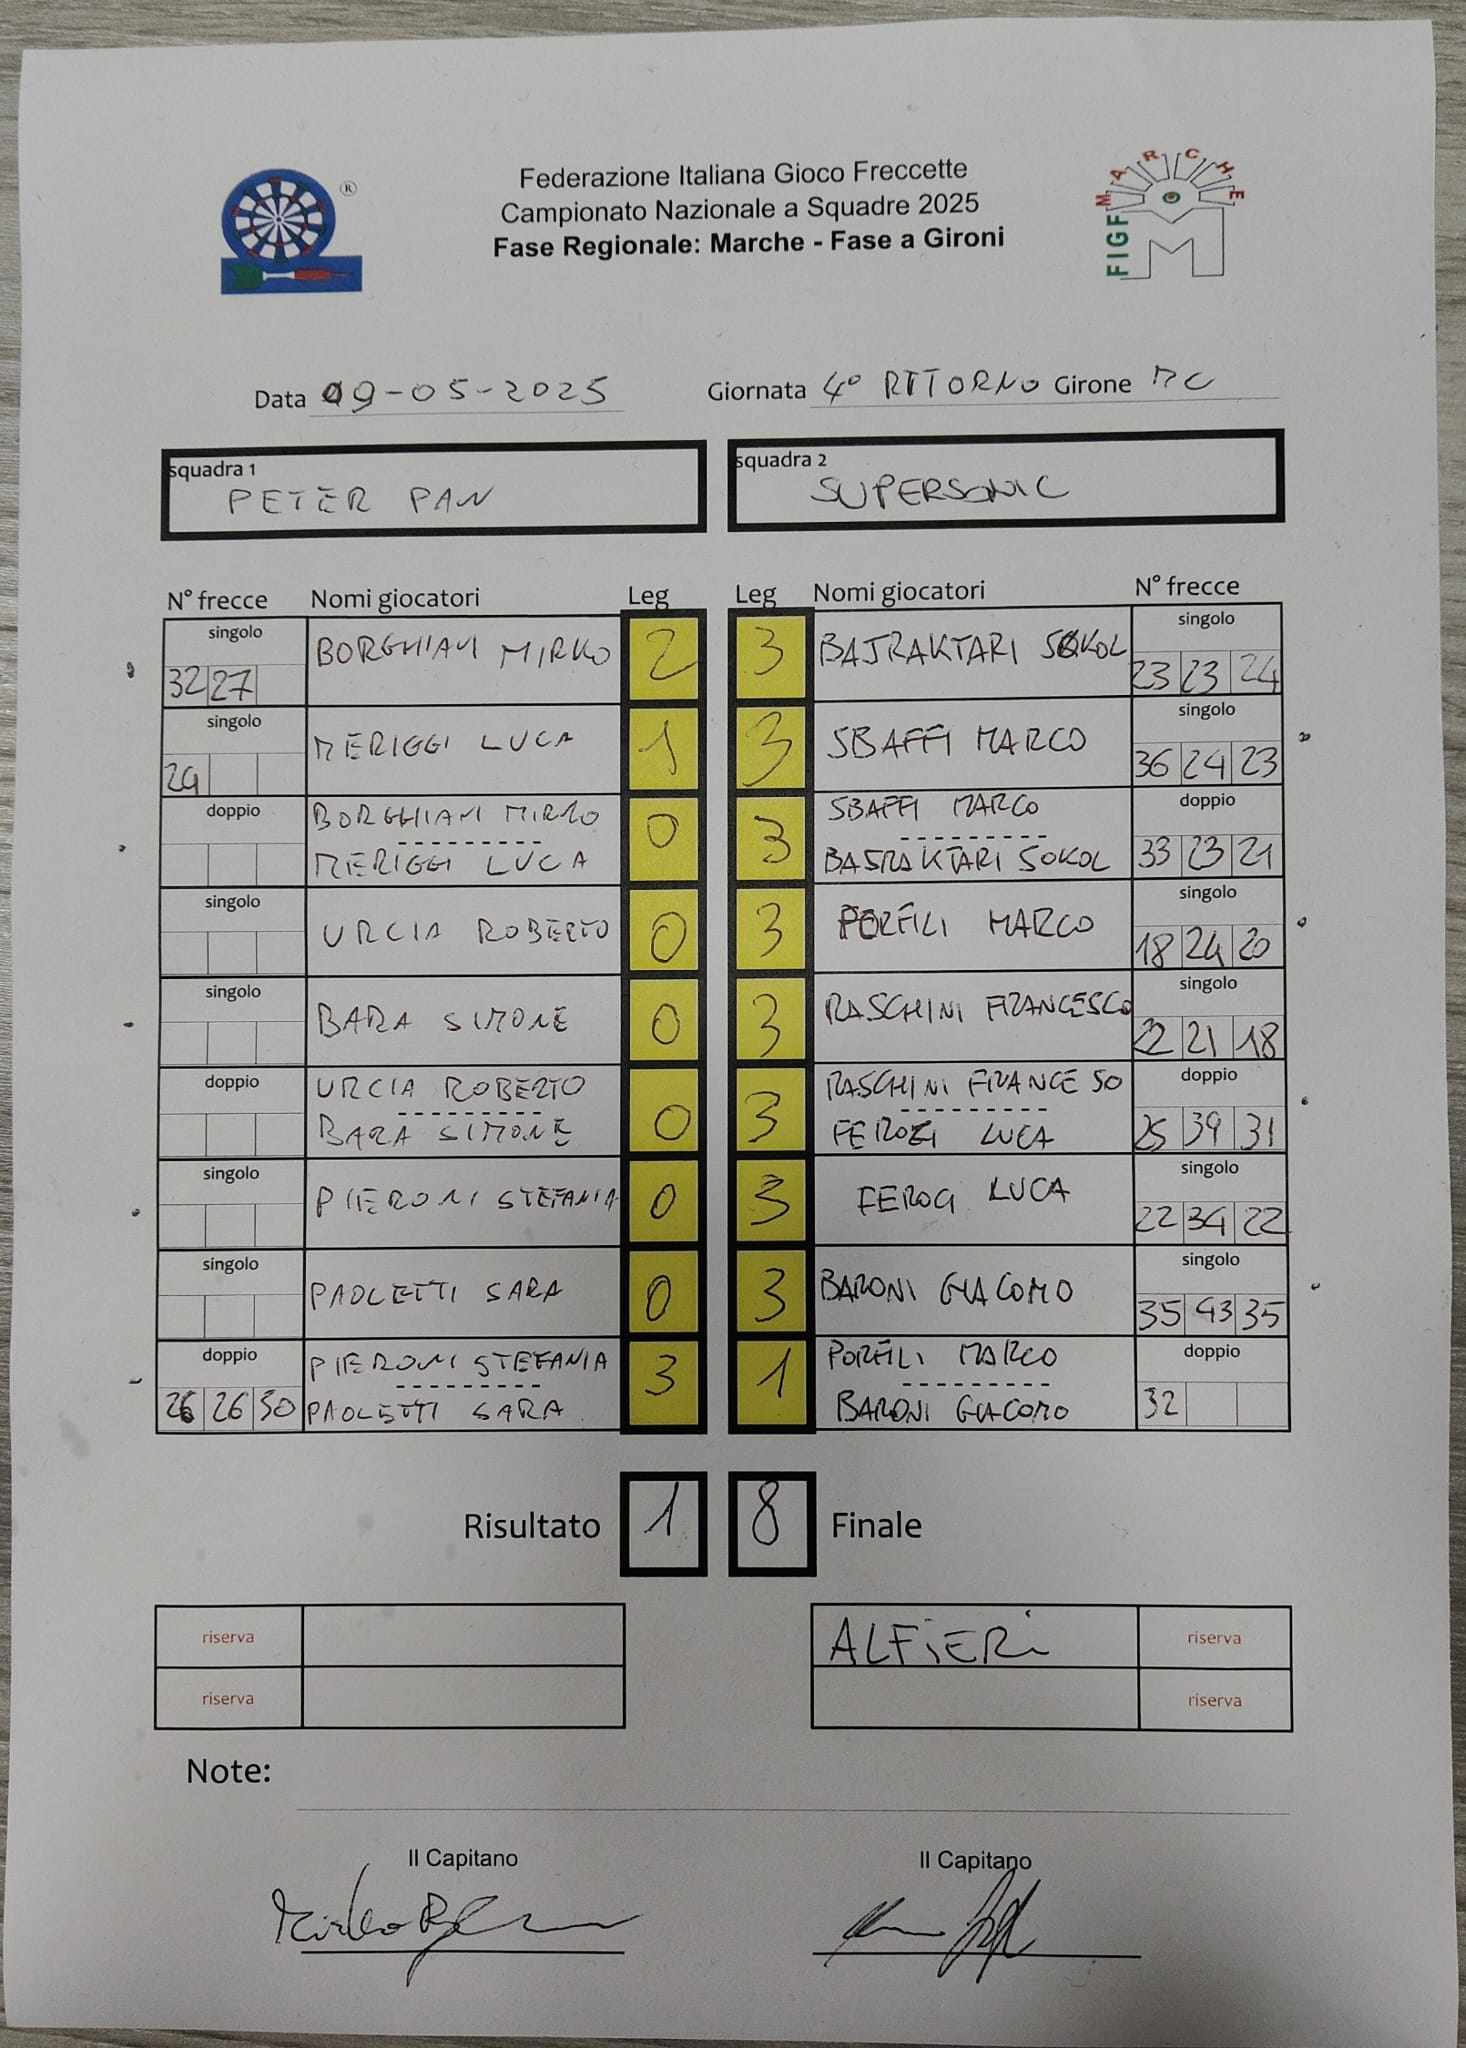 Federazione Italiana Gioco Freccette
Campionato Nazionale a Squadre 2025
Fase Regionale: Marche - Fase a Gironi
®
MARCHE
FIGF
M
Data 09-05-2025 Giornata 4° RITORNO Girone MC
squadra 1
PETER PAN
squadra 2
SUPERSONIC
N° frecce Nomi giocatori Leg Leg Nomi giocatori N° frecce
singolo BORGHIANI MIRKO 2 3 BAJRAKTARI SOKOL singolo
32 27 23 23 24
singolo MERIGGI LUCA 1 3 SBAFFI MARCO singolo
24 36 24 23
doppio BORGHIANI MIRKO 0 3 SBAFFI MARCO doppio
MERIGGI LUCA BAJRAKTARI SOKOL 33 23 21
singolo URCIA ROBERTO 0 3 PORFILI MARCO singolo
18 24 20
singolo BARA SIMONE 0 3 RASCHINI FRANCESCO singolo
22 21 18
doppio URCIA ROBERTO 0 3 RASCHINI FRANCE SO doppio
BARA SIMONE FEROGI LUCA 25 39 31
singolo PIERONI STEFANIA 0 3 FEROGI LUCA singolo
22 34 22
singolo PAOLETTI SARA 0 3 BARONI GIACOMO singolo
35 43 35
doppio PIERONI STEFANIA 3 1 PORFILI MARCO doppio
26 26 30 PAOLETTI SARA BARONI GIACOMO 32
Risultato 1 8 Finale
riserva ALFIERI riserva
riserva riserva
Note:
Il Capitano Il Capitano